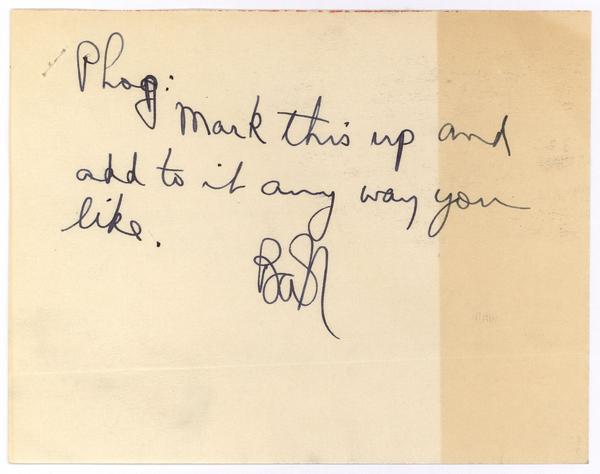 Phog:
Mark this up and
add to it any way you
like.